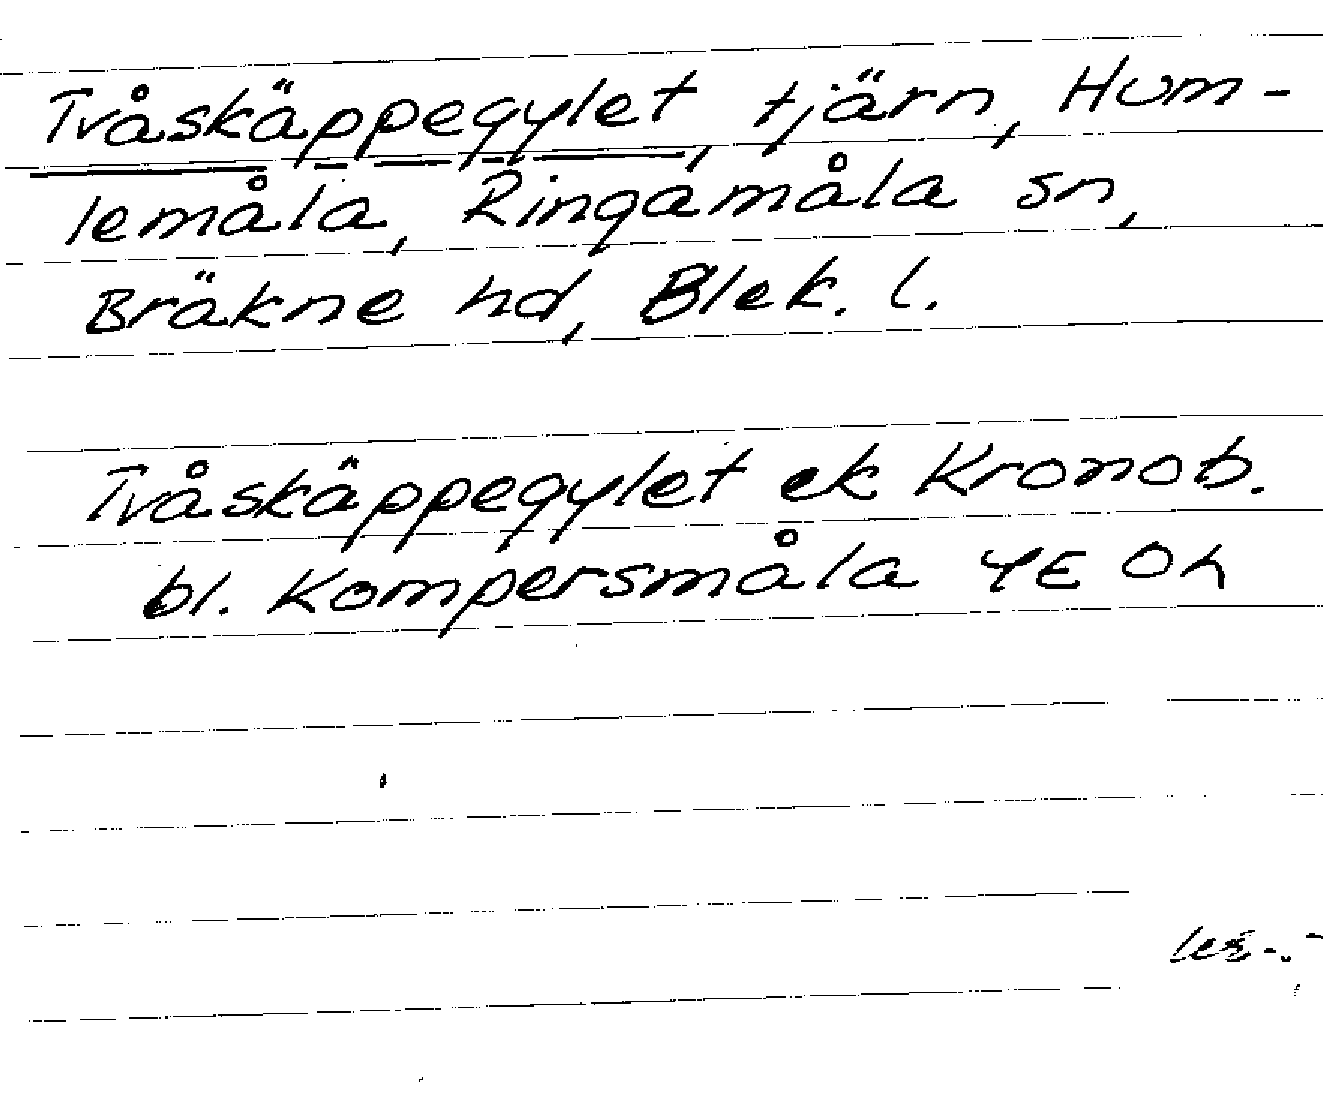 Tvåskäppegylet, tjärn, Hum-
lemåla, Ringamåla sn,
Bräkne hd, Blek. l.
Tvåskäppegylet ek Kronob.
bl. Kompersmåla 4E Oh